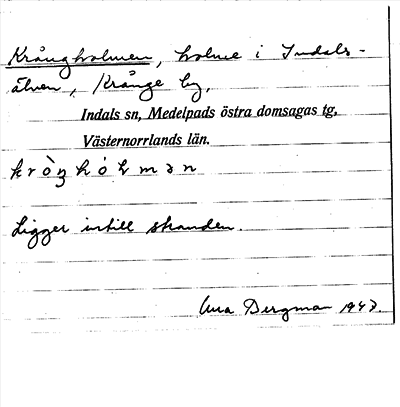 Krångholmen, holme i Indals-
älven, Krånge by,
Indals sn, Medelpads östra domsagas tg,
Västernorrlands län.
Ligger intill stranden.
Dergman 1943.